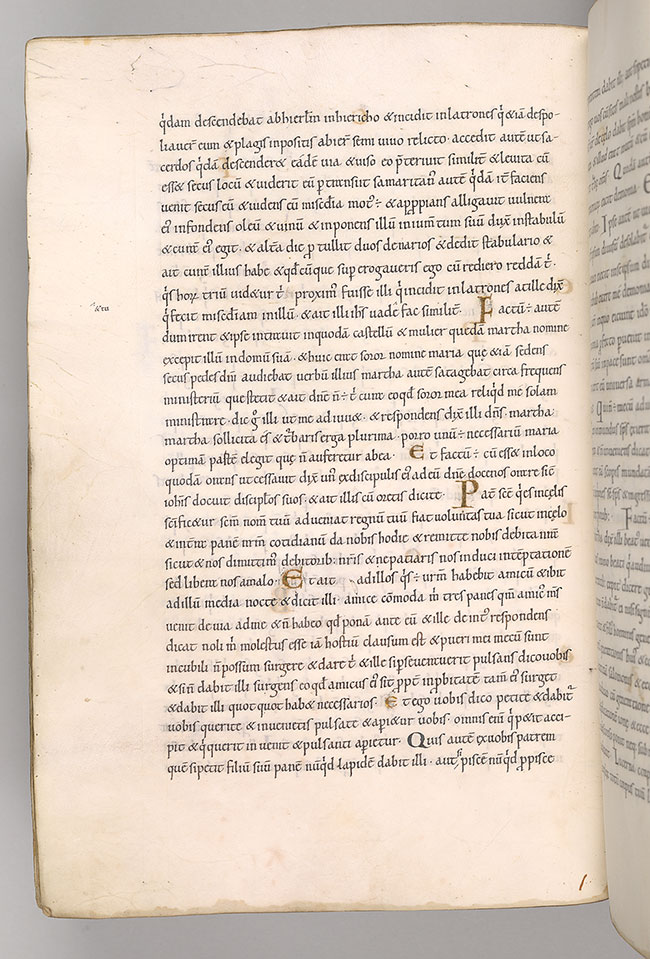 q'dam descendebat abhierl̄m inhiericho & incidit inlatrones q' &iā despo-
liauer̄ eum & plagis inpositis abier̄ semi uiuo relicto · accedit autē ut sa-
cerdos q'dā descender& eadē uia & uiso eo p̄teriuit similit̄ & leuita cū
ess& secus locū & uider& eū p̄transiit samaritan' autē q'dā it̄ faciens
uenit secus eū & uidens eū misedīa mot' ÷ & app̄pians alligauit uulnera
ei' infundens oleū & uinū & inponens illū iniumtum suū dux̄ instabulū
& curā ei' egit · & altā die p̄tullit duos denarios & dedit stabulario &
ait curā illius habe & qd̄cūque super erogaueris ego cū rediero reddā t̄ ·
q's hor̄ triū uid&ur t̄ · proxim' fuisse illi q'incidit inlatrones atille dix̄
&tu
q'fecit misediam inillū & ait illi ih̄s uade fac similit̄ · Factū ÷ autē
dum irent & ipse intrauit inquodā castellū & mulier quedā martha nomine
excepit illū indomū suā · & huic erat soror nomine maria quę &iā sedens
secus pedes dn̄i audiebat uerbū illius martha autē satagebat circa frequens
ministeriū quę stetit & ait dn̄e n̄ ÷ t̄ curae eoqd̄ soror mea reliq'd me solam
ministrare · dic g̊ illi ut me adiuu& · & respondens dix̄ illi dn̄s · martha
martha sollicita es & t̄baris erga plurima · porro unū ÷ necessariū maria
optimā partē elegit quę n̄ auferetur abea · Et factū ÷ cū ess& inloco
quodā orans ut cessauit dix̄ un' exdiscipulis ei' adeū dn̄e doce nos orare sic̄
ioh̄s docuit discip̄los suos · & ait illis cū oratis dicite · Pat̄ sc̄e q'es incęlis
sc̄ific&ur nom̄ tuū adueniat regnū tuū fiat uoluntas tua sicut incęlo
& int̄ra panē nr̄m cotidianū da nobis hodie & remitte nobis debita nr̄a
sicut & nos dimittim' debitorib: nr̄is & ne patiaris nos induci intēptatione
sed libera nos amalo · Et ait adillos q's ÷ ur̄m habebit amicū & ibit
adillū media nocte & dicit illi · amice cōmoda m̄ tres panes qm̄ amic' m̄s
uenit de uia adme & n̄ habeo qd̄ ponā ante eū & ille deint' respondens
dicat noli m̄ molestus esse iā hostiū clausum est & pueri mei mecū sunt
incubili n̄ possum surgere & dare t̄ & ille siperseuerauerit pulsans dico uobis
& sin̄ dabit illi surgens eo qd̄ amicus ei' sit p̄pt̄ inp̄bitatē tam̄ ei' surget
& dabit illi quotquot hab& necessarios · Et ego uobis dico petite & dabit̄
uobis querite & inueni&is pulsate & aperi&ur uobis · omnis enī q'p&it acci-
pit & q'querit inuenit & pulsanti aperietur · Quis autē exuobis patrem
quē sipetit filiū suū panē nūq'd lapidē dabit illi · aut si piscē nūq'd p̄pisce